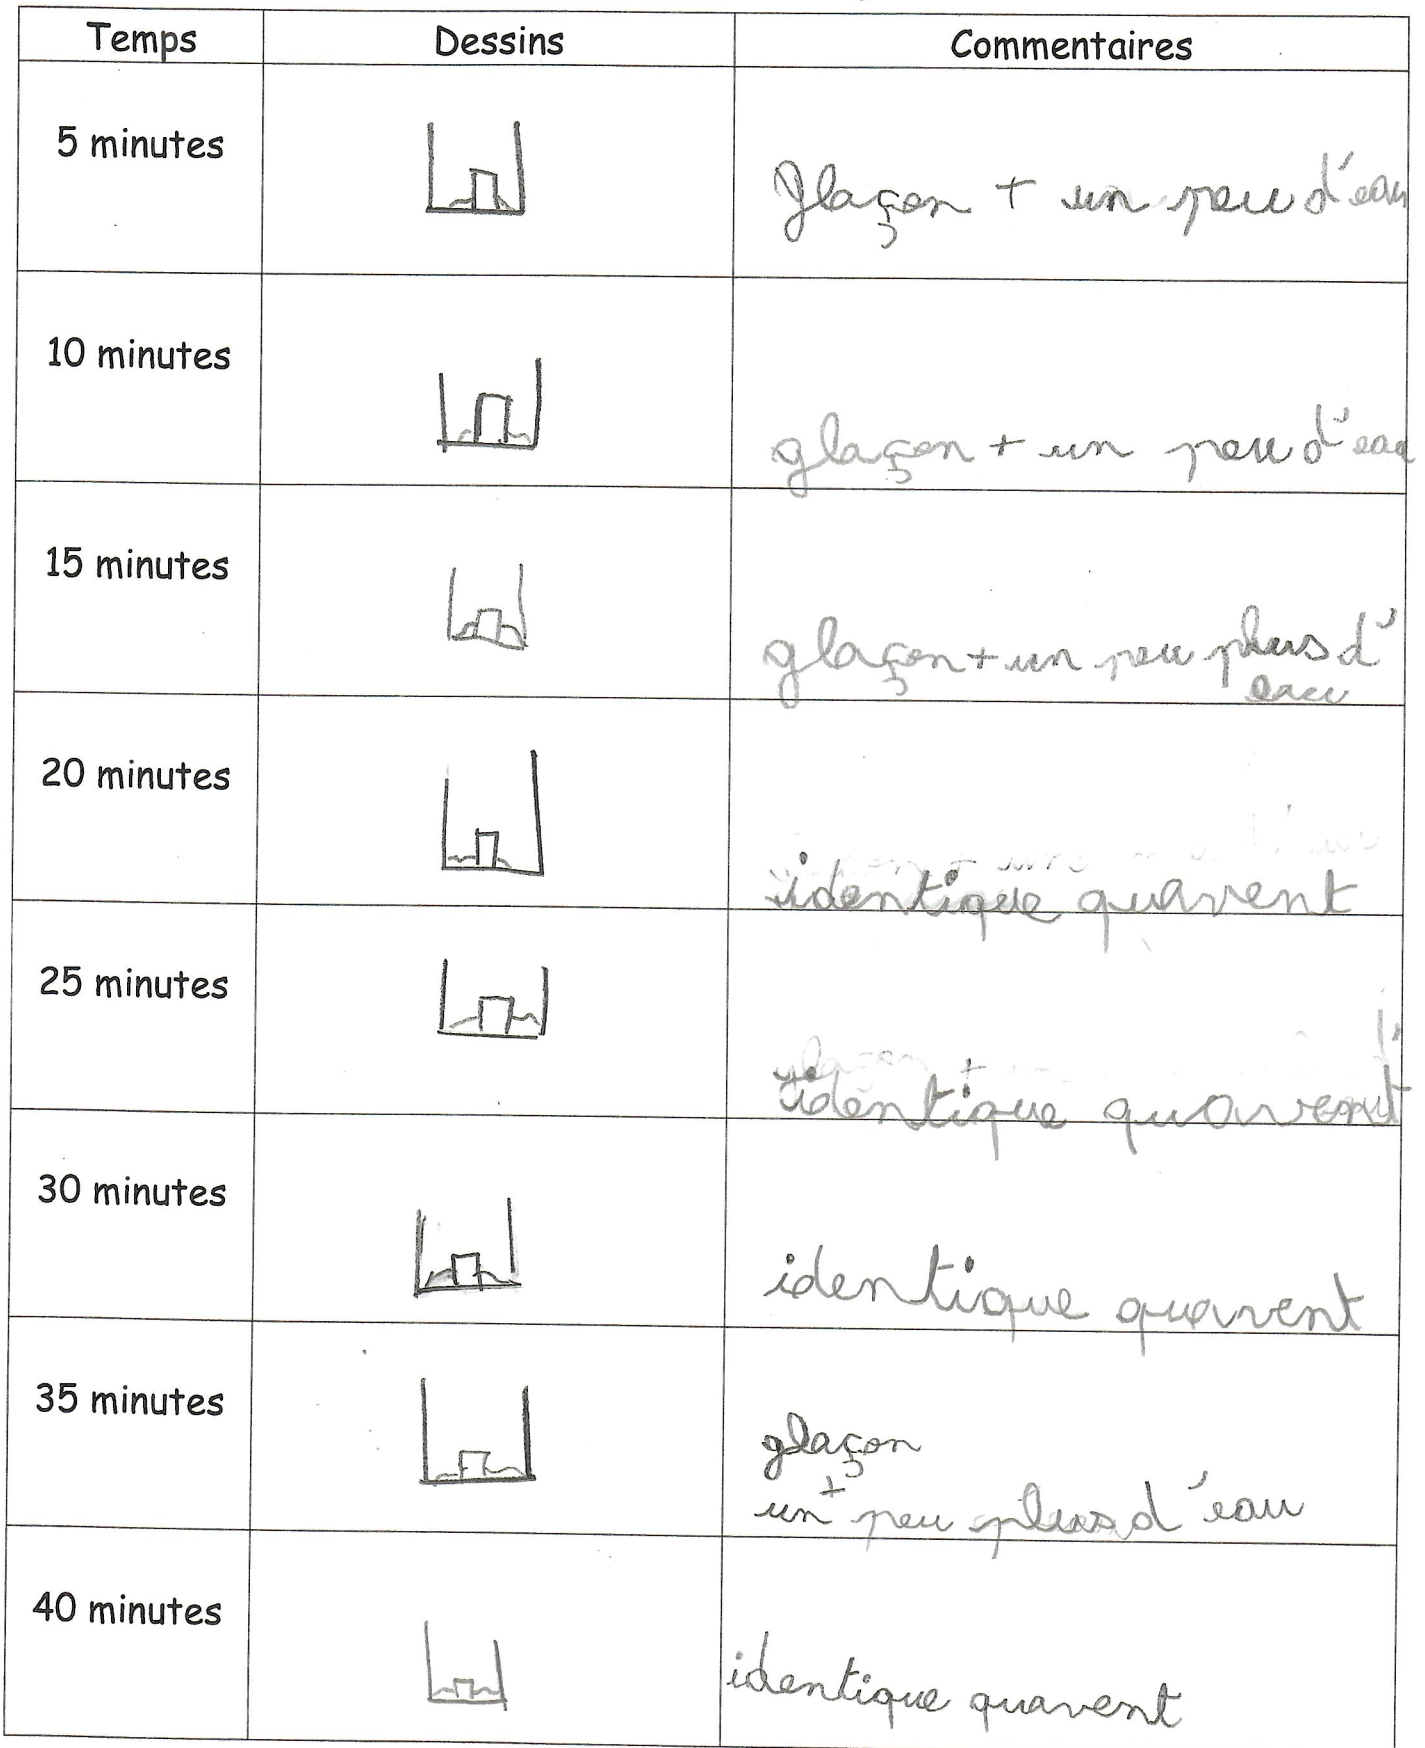 Temps Dessins Commentaires
5 minutes
glaçon + un peu d'eau
10 minutes
glaçon + un peu d'eau
15 minutes
glaçon + un peu plus d'
eau
20 minutes
identique quavent
25 minutes
identique quavent
30 minutes
identique quavent
35 minutes
glaçon
+
un peu plus d'eau
40 minutes
identique quavent